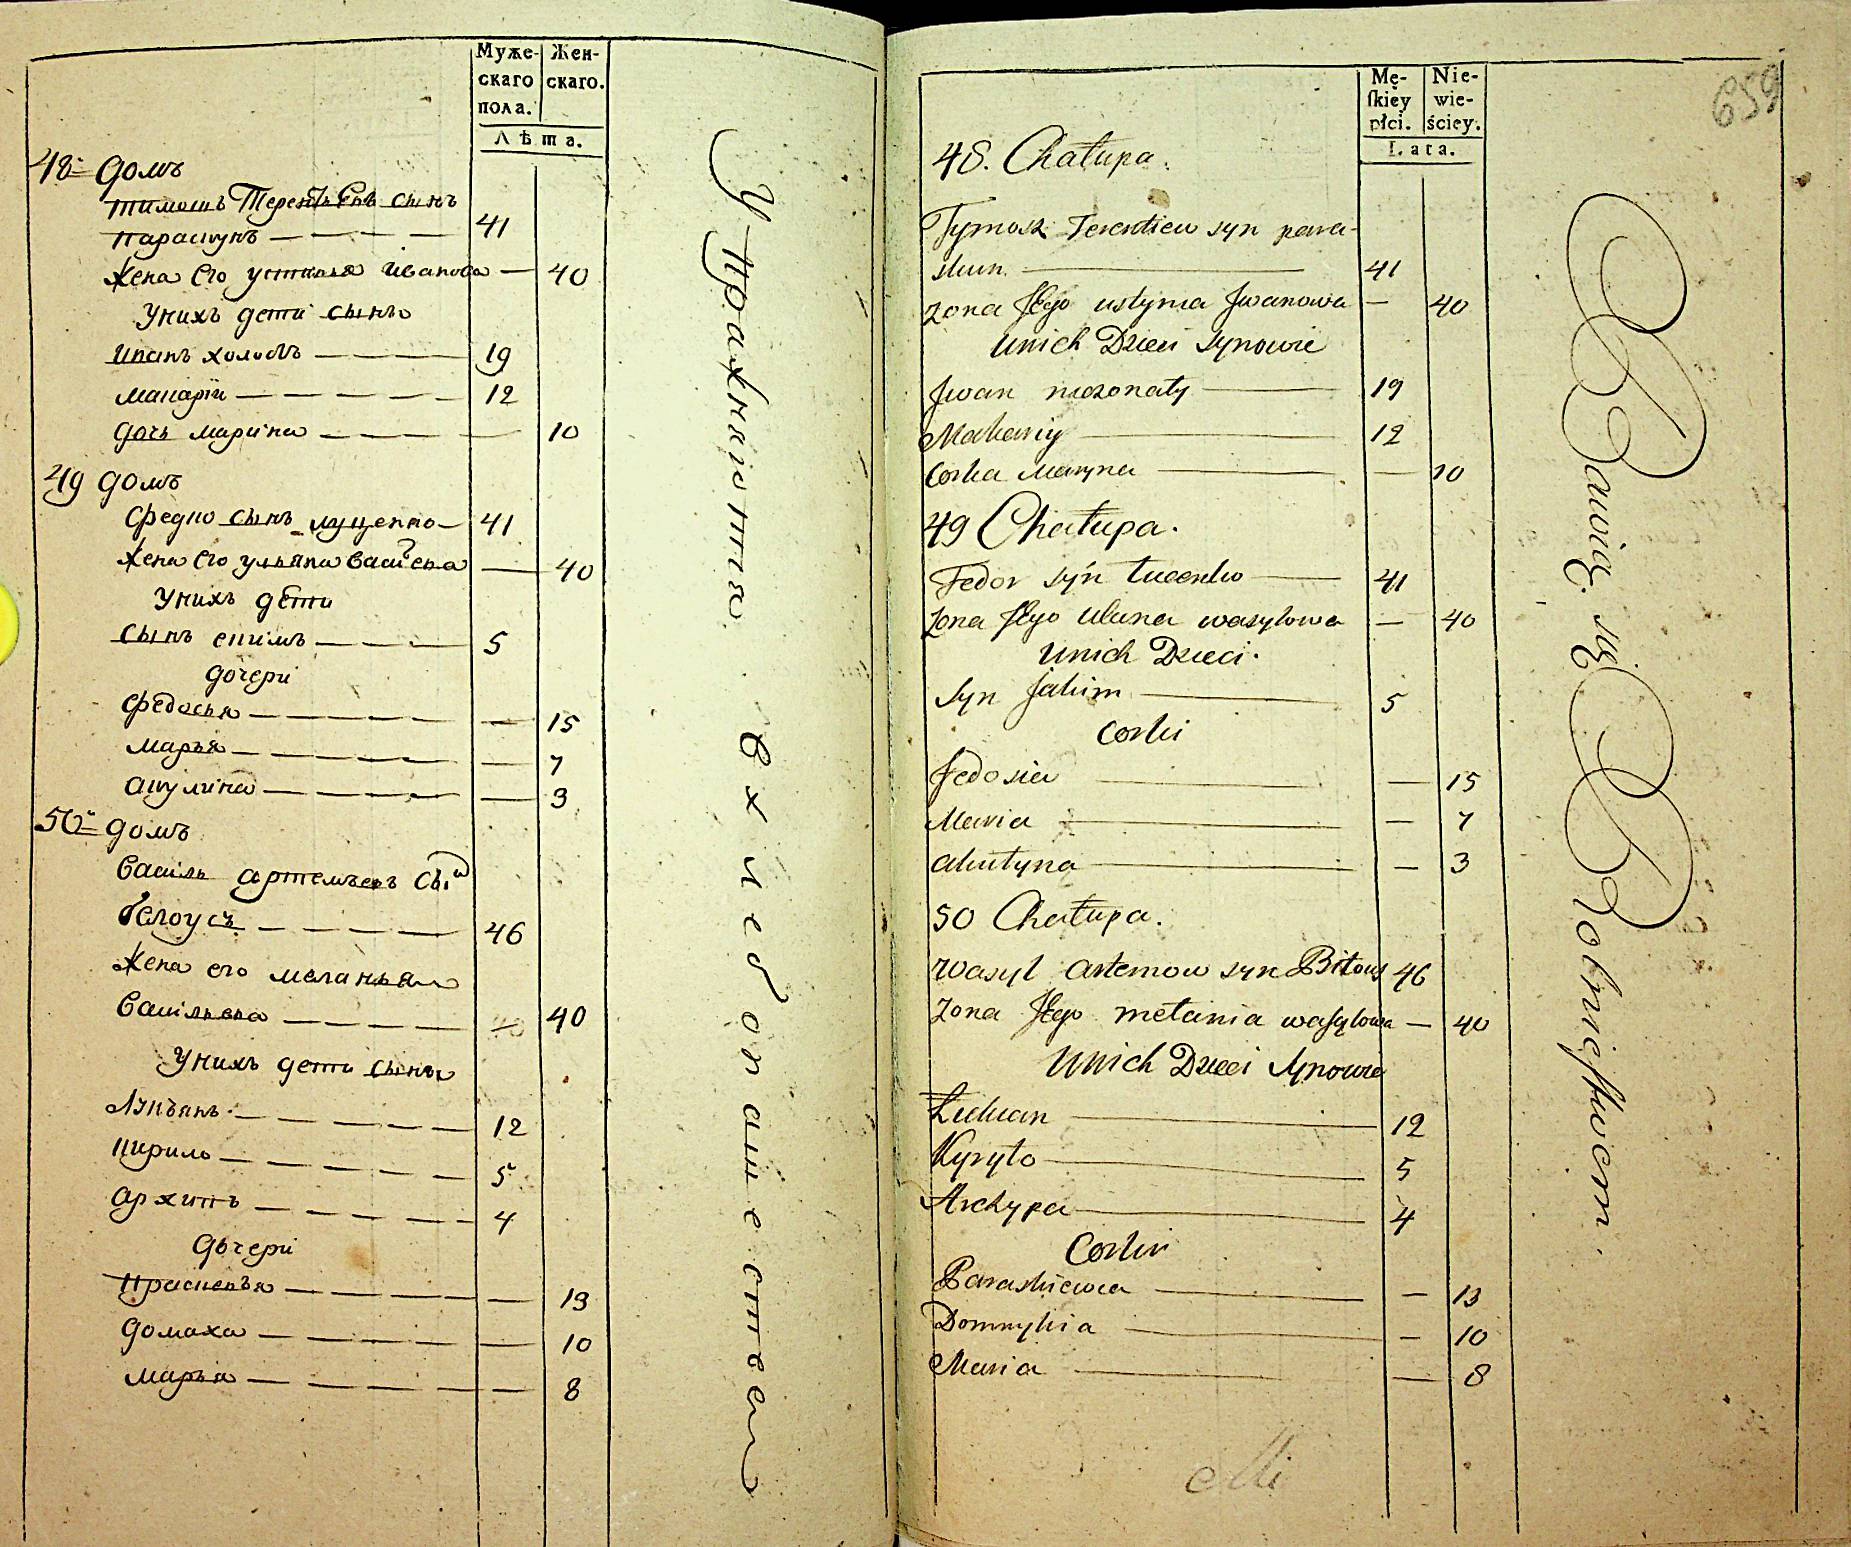 Муже-
скаго
пола.
Жен-
скаго.
Лѣта.
48 домъ
тимошъ Терентьевъ сынъ
парасунъ 41
жена его устинья иванова 40
У нихъ дети сынъ
иванъ холостъ 19
макарiй 12
дочь марина 10
49 домъ
федко сынъ луценко 41
жена его ульяна васiлева 40
У нихъ дети
сынъ екимъ 5
дочери
федосья 15
марья 7
акулина 3
50 домъ
васiль артемьевъ сынъ
белоусъ 46
жена его меланья
васiльева 40
У нихъ дети сыны
лукьянъ 12
кирило 5
архипъ 4
дочери
прасковья 13
домаха 10
марья 8
Упражняютца
в хлебопашестве
Mę-
skiéy
płci.
Nie-
wie-
ściey.
Lata.
659
48. Chałupa.
Tymosz Terentiew syn para-
sun 41
zona Jego ustynia Jwanowa 40
unich Dzieci synowie
Jwan niezonaty 19
Makariy 12
Corka Maryna 10
49 Chałupa.
Fedor syn Łucenko 41
zona Jego Uliana wasylowa 40
Unich Dzieci.
syn Jakim 5
Corki
Fedosia 15
Maria 7
akulyna 3
50 Chałupa.
Wasyl artemow syn Biłous 46
zona Jego mełania wasylowa 40
Unich Dzieci synowie
Łukian 12
Kyryło 5
Archypa 4
Corki
Paraskiewia 13
Domnykia 10
Maria 8
Bawią się Rolnictwem.